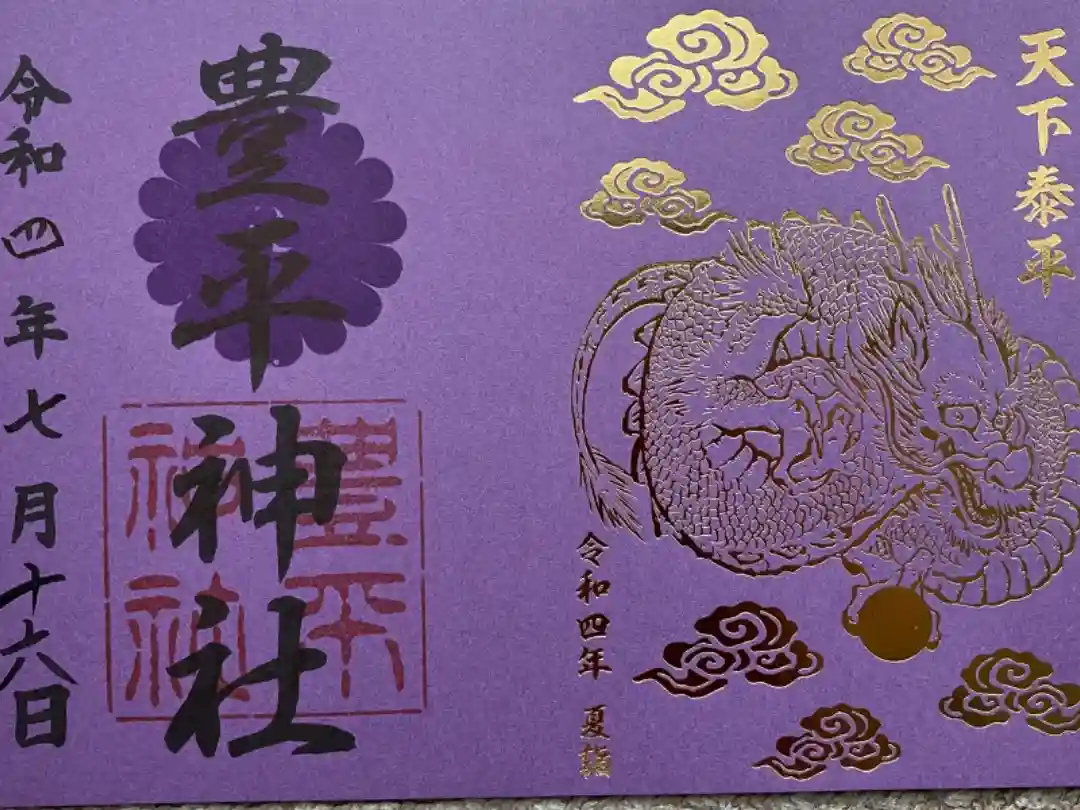 天下泰平
令和四年 夏詣
豊平神社
豊平
神社
令和四年七月十六日